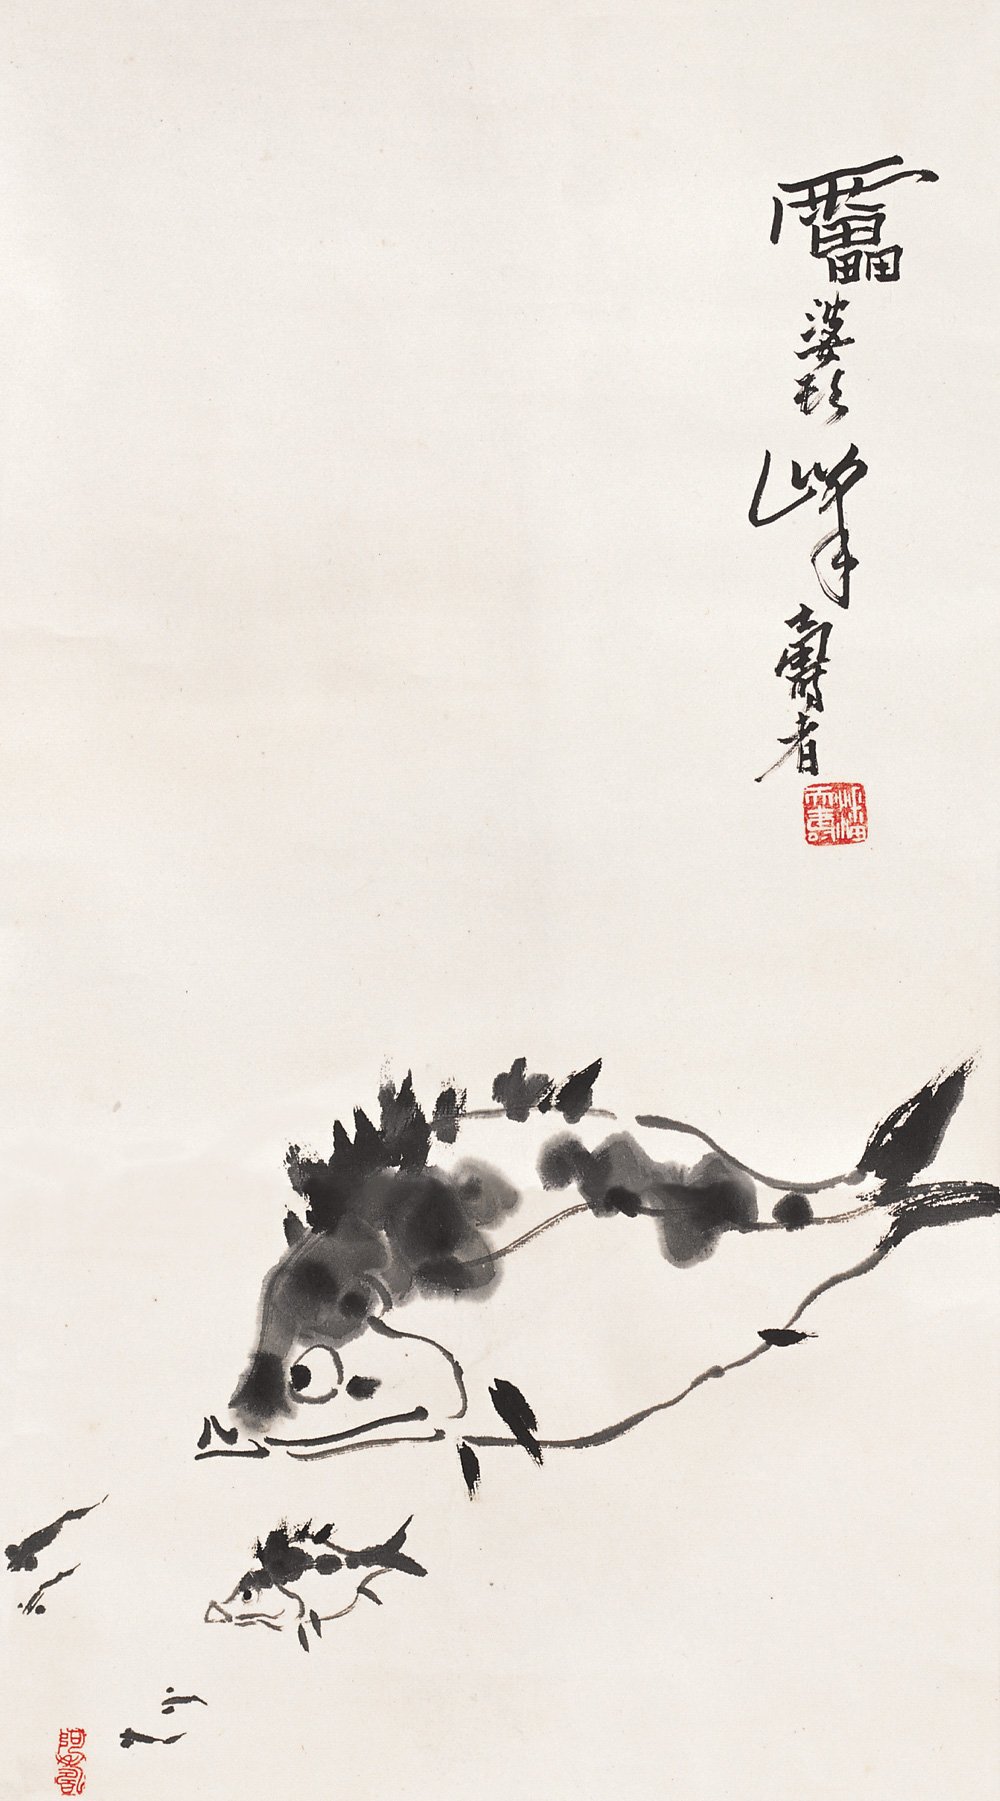 靁婆頭峰壽者
潘天壽
阿壽